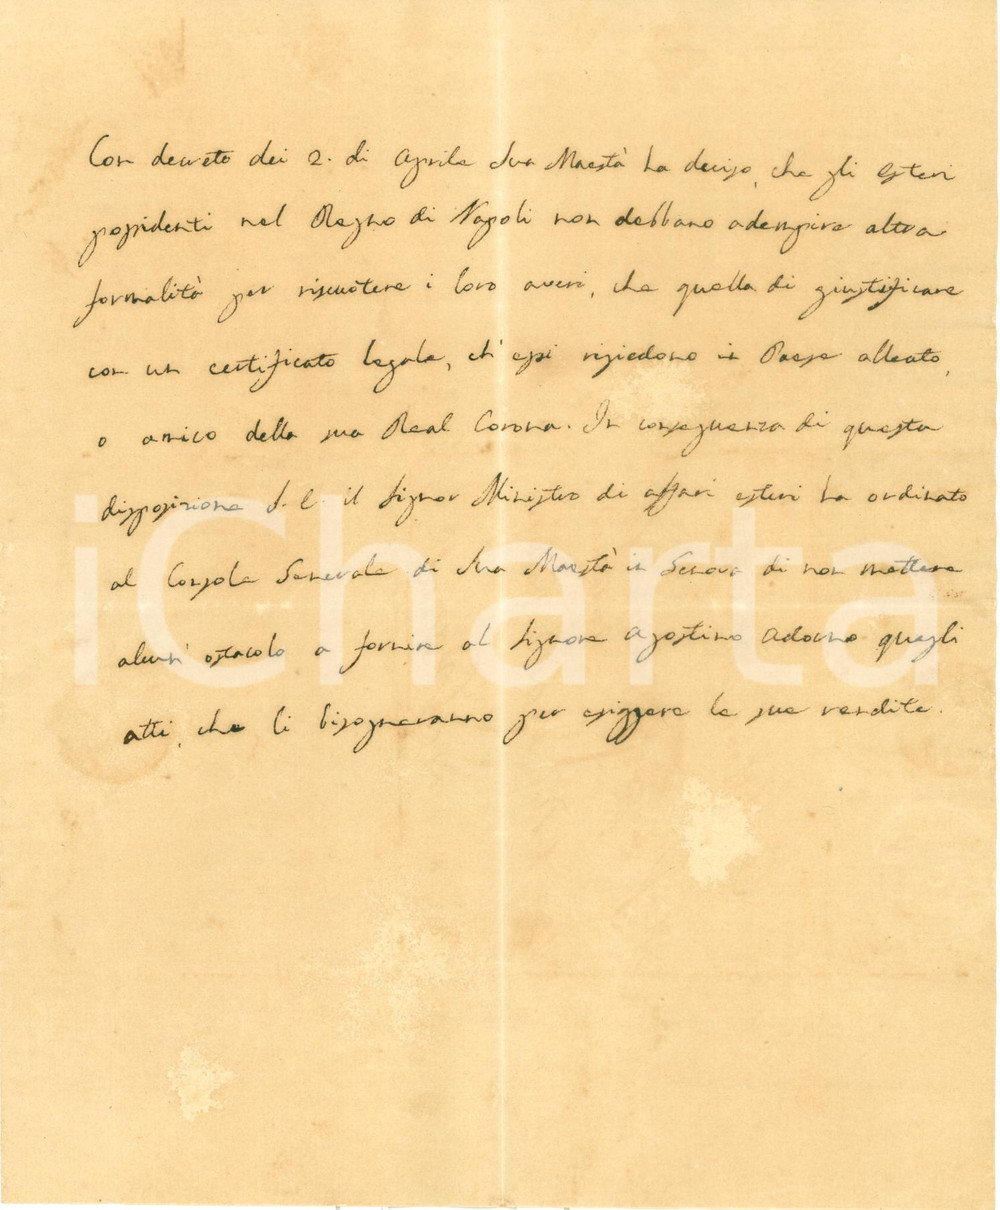 Con decreto dei 2. di Aprile Sua Maestà ha deciso, che gli esteri
possidenti nel Regno di Napoli non debbano adempire altra
formalità per riscuotere i loro averi, che quella di giustificare
con un certificato legale, ch'essi risiedono in Paese alleato,
o amico della sua Real Corona. In conseguenza di questa
disposizione S. E. il Signor Ministro di affari esteri ha ordinato
al Console Generale di Sua Maestà in Genova di non mettere
alcun' ostacolo a fornire al Signore Agostino Adorno quegli
atti, che li bisogneranno per esiggere le sue rendite.
iCharta